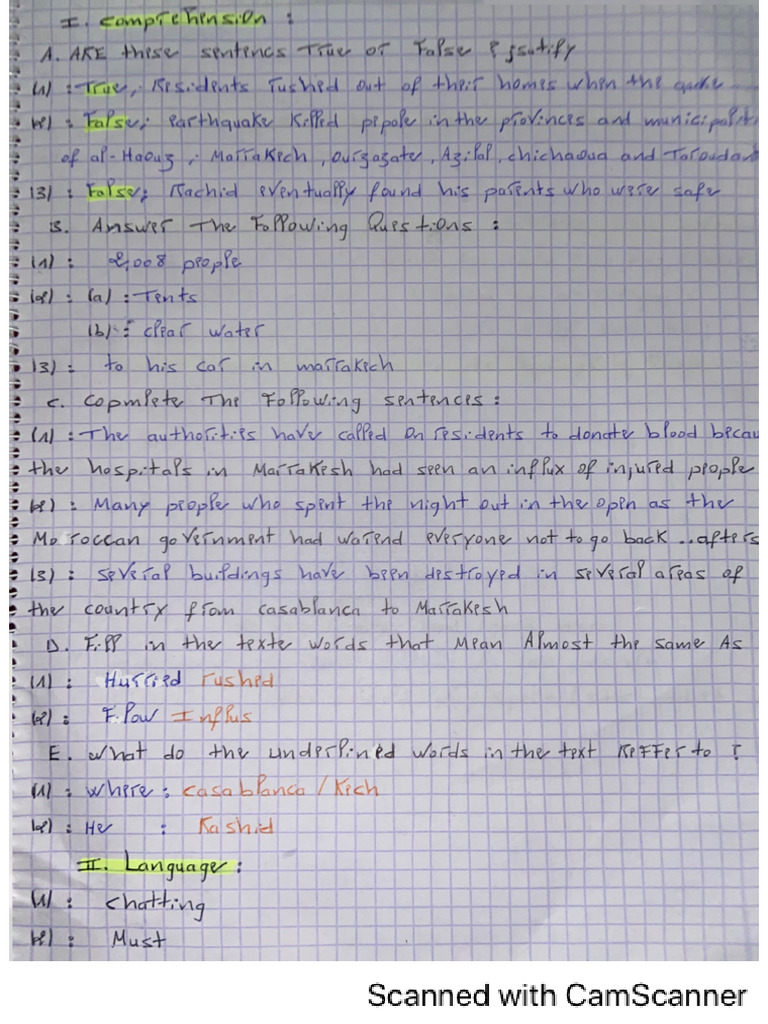 I. Comprehension :
A. ARE these sentencs True or False & Jsutify
(1) : True, Residents rushed out of their homes when the quake
(2) : False, Earthquake Killed pepole in the provinces and municipalit
of al-Haouz, Marrakech, ourzazate, Azilal, chichaoua and Taroudan
(3) : False, Rachid eventually found his parents who were safe
B. Answer The Following Questions :
(1) : 2,008 people
(2) : (a) : Tents
(b) : clear water
(3) : to his car in marrakech
C. Copmlete The Following sentences :
(1) : The authorities have called on residents to donate blood becau
the hospitals in Marrakesh had seen an influx of injured people
(2) : Many people who spent the night out in the open as the
Moroccan government had warend everyone not to go back .. afters
(3) : several buildings have been destroyed in several areas of
the country from casablanca to Marrakesh
D. Fill in the texte words that Mean Almost the same As
(1) : Hurried rushed
(2) : Flow Influs
E. what do the underlined words in the text Reffer to ?
(1) : where : casablanca / Kech
(2) : He : Rashid
II. Language :
(1) : chatting
(2) : Must
Scanned with CamScanner